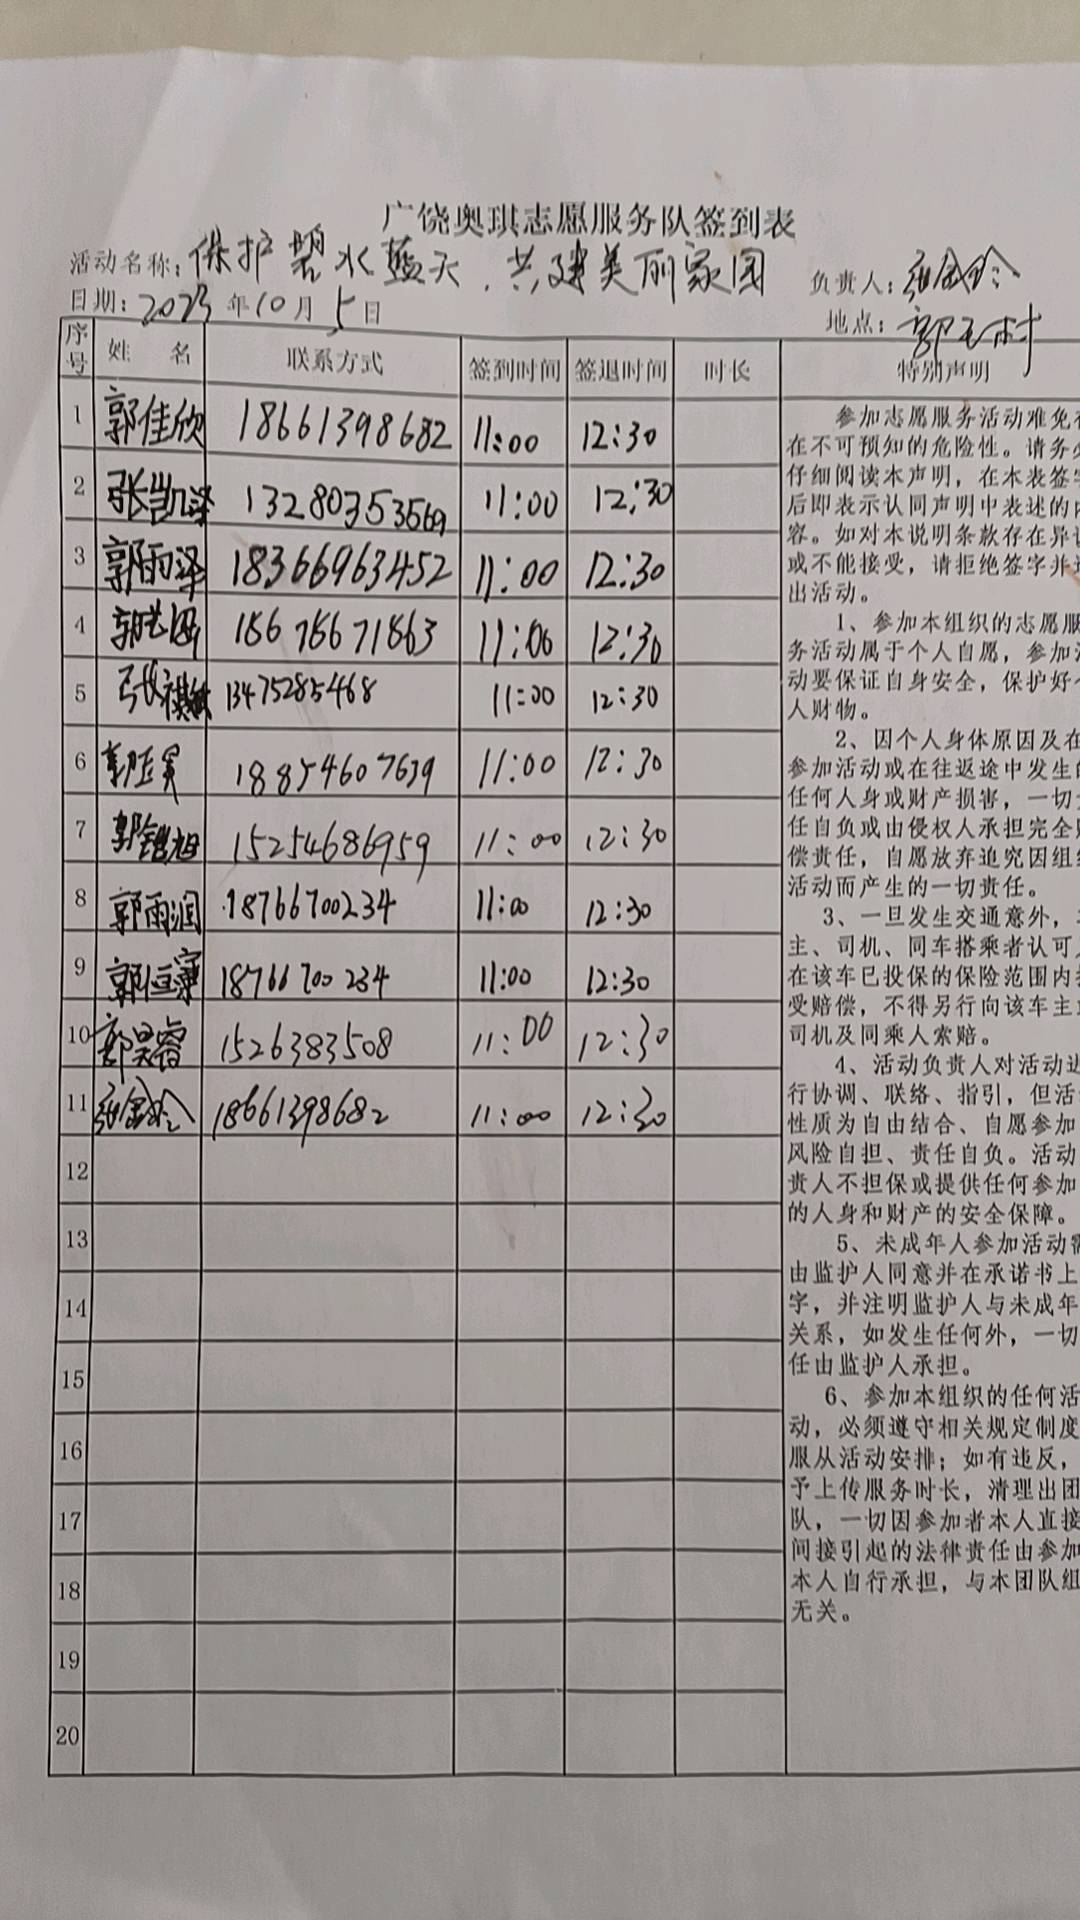 广饶奥琪志愿服务队签到表
活动名称：保护碧水蓝天，共建美丽家园 负责人：
日期：2023年10月5日 地点：郭王村
序号 姓名 联系方式 签到时间 签退时间 时长 特别声明
1 郭佳欣 18661398682 11:00 12:30
2 张凯泽 13280353569 11:00 12:30
3 郭雨泽 18366963452 11:00 12:30
4 11:00 12:30
5 张祺 13475285468 11:00 12:30
6 18854607639 11:00 12:30
7 15254686959 11:00 12:30
8 郭雨润 18766700234 11:00 12:30
9 18766700234 11:00 12:30
10 郭昊睿 1526383508 11:00 12:30
11 18661398682 11:00 12:30
12
13
14
15
16
17
18
19
20
参加志愿服务活动难免存
在不可预知的危险性。请务必
仔细阅读本声明，在本表签字
后即表示认同声明中表述的内
容。如对本说明条款存在异议
或不能接受，请拒绝签字并退
出活动。
1、参加本组织的志愿服
务活动属于个人自愿，参加活
动要保证自身安全，保护好个
人财物。
2、因个人身体原因及在
参加活动或在往返途中发生的
任何人身或财产损害，一切责
任自负或由侵权人承担完全赔
偿责任，自愿放弃追究因组织
活动而产生的一切责任。
3、一旦发生交通意外，车
主、司机、同车搭乘者认可
在该车已投保的保险范围内接
受赔偿，不得另行向该车主或
司机及同乘人索赔。
4、活动负责人对活动进
行协调、联络、指引，但活动
性质为自由结合、自愿参加
风险自担、责任自负。活动
责人不担保或提供任何参加
的人身和财产的安全保障。
5、未成年人参加活动需
由监护人同意并在承诺书上
字，并注明监护人与未成年
关系，如发生任何外，一切
任由监护人承担。
6、参加本组织的任何活
动，必须遵守相关规定制度
服从活动安排；如有违反，
予上传服务时长，清理出团
队，一切因参加者本人直接
间接引起的法律责任由参加
本人自行承担，与本团队组
无关。